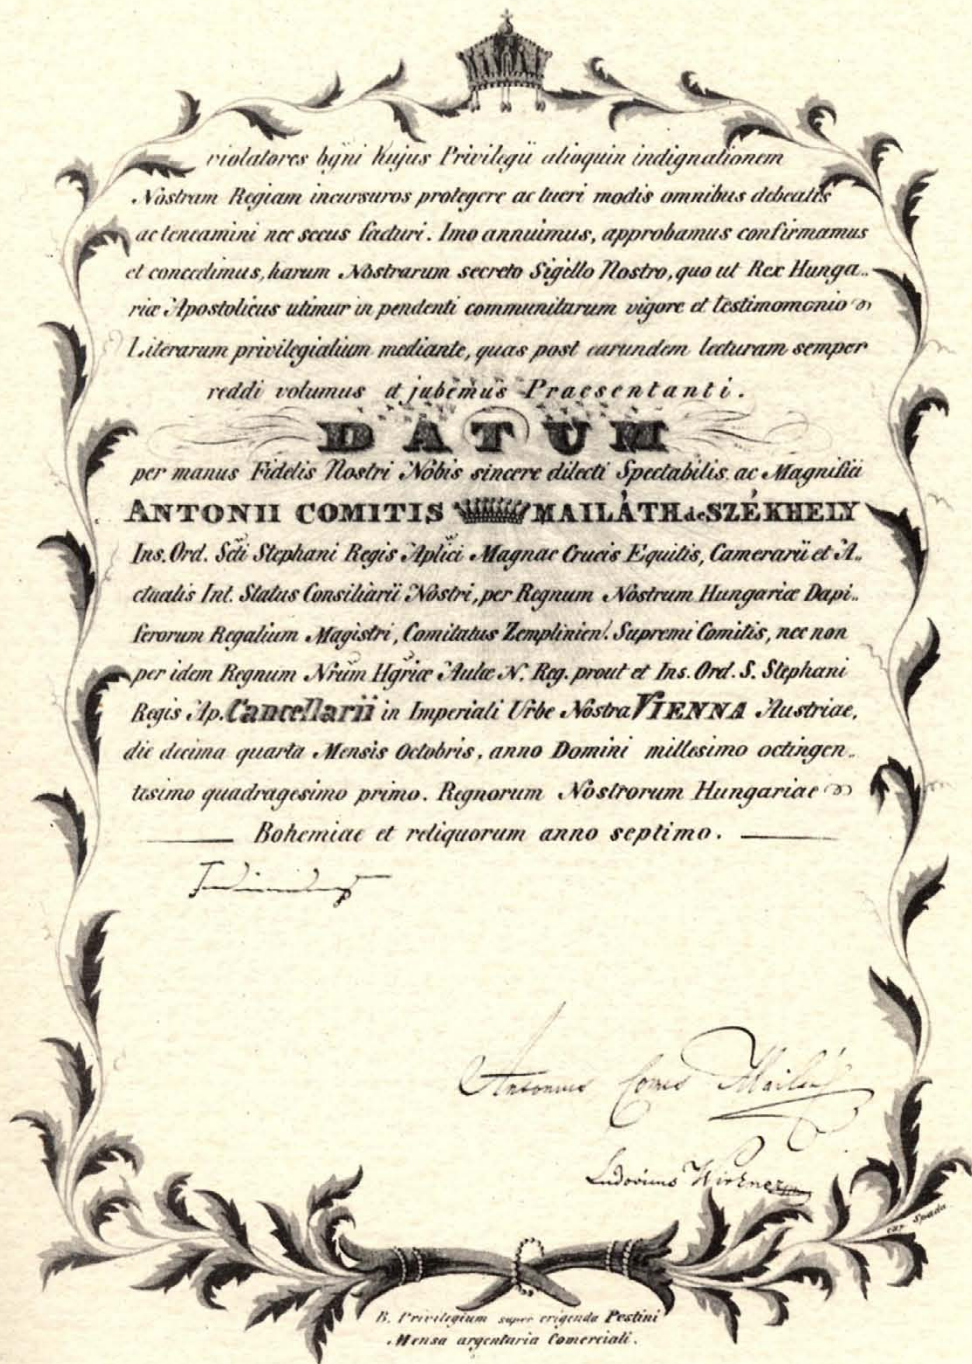 violatores bg̃ni hujus Privilegii alioquin indignationem
Nostram Regiam incursuros protegere ac tueri modis omnibus debeatis
ac teneamini nec secus facturi. Imo annuimus, approbamus confirmamus
et concedimus, harum Nostrarum secreto Sigillo Nostro, quo ut Rex Hunga..
riæ Apostolicus utimur in pendenti communitarum vigore et testimomonio
Literarum privilegialium mediante, quas post earundem lecturam semper
reddi volumus et jubemus Praesentanti.
DATUM
per manus Fidelis Nostri Nobis sincere dilecti Spectabilis ac Magnifici
ANTONII COMITIS MAILÁTH de SZÉKHELY
Ins. Ord. Scti Stephani Regis Aplici Magnae Crucis Equitis, Camerarii et A..
ctualis Int. Status Consiliarii Nostri, per Regnum Nostrum Hungariæ Dapi..
ferorum Regalium Magistri, Comitatus Zemplinien. Supremi Comitis, nec non
per idem Regnum Nrum Hgriæ Aulæ N. Reg. prout et Ins. Ord. S. Stephani
Regis Ap. Cancellarii in Imperiali Urbe Nostra VIENNA Austriae,
die decima quarta Mensis Octobris, anno Domini millesimo octingen..
tisimo quadragesimo primo. Regnorum Nostrorum Hungariae
Bohemiae et reliquorum anno septimo.
Antonius Comes Mailáth
Ludovicus Wirkner
Spada
B. Privilegium super erigenda Pestini
Mensa argentaria Comerciali.